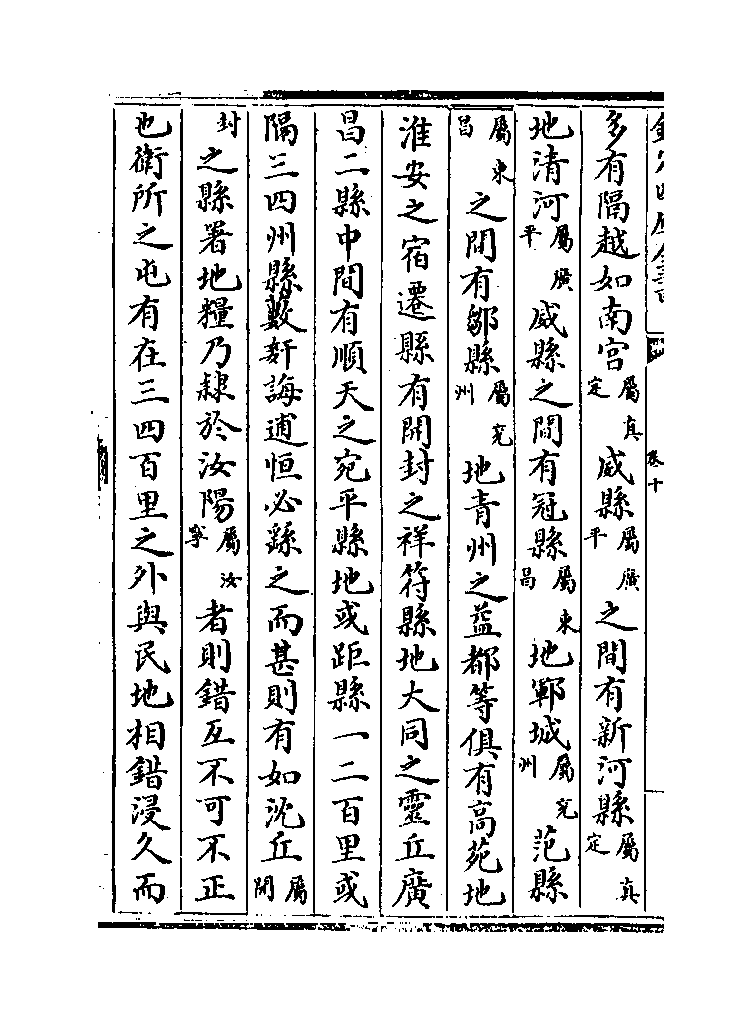 欽定四庫全書 卷十
多有隔越如南宮屬真定威縣屬廣平之間有新河縣屬真定
地清河屬廣平威縣之間有冠縣屬東昌地鄆城屬兖州范縣
屬東昌之間有鄒縣屬兖州地青州之益都等俱有高苑地
淮安之宿遷縣有開封之祥符縣地大同之靈丘廣
昌二縣中間有順天之宛平縣地或距縣一二百里或
隔三四州縣藪奸誨逋恒必繇之而甚則有如沈丘屬開
封之縣署地糧乃隸於汝陽屬汝寧者則錯互不可不正
也衛所之屯有在三四百里之外與民地相錯浸久而